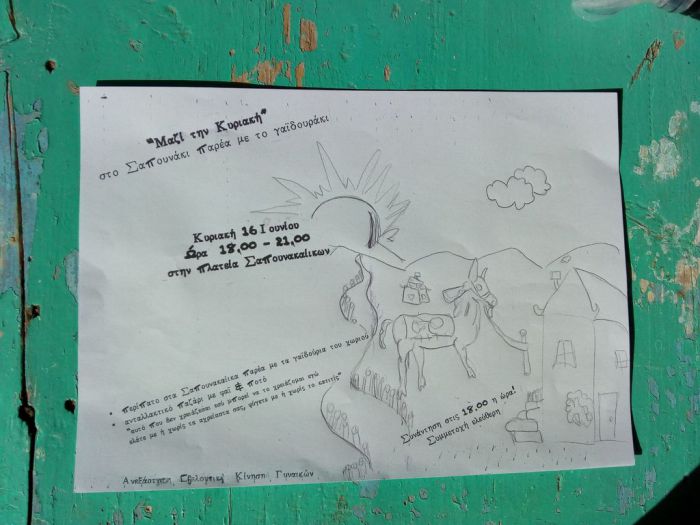 "Μαζί την Κυριακή"
στο Σαπουνάκι παρέα με το γαϊδουράκι
Κυριακή 16 Ιουνίου
Ώρα 18,00 - 21,00
στην πλατεία Σαπουνακαίικων
• περίπατο στα Σαπουνακαίικα παρέα με τα γαϊδούρια του χωριού
• ανταλλακτικό παζάρι με φαΐ & ποτό
• "αυτό που δεν χρειάζεσαι εσύ μπορεί να το χρειάζομαι εγώ
ελάτε με ή χωρίς τα αχρείαστα σας, φύγετε με ή χωρίς το κατιτίς"
Συνάντηση στις 18,00 η ώρα!
Συμμετοχή ελεύθερη
Ανεξάρτητη Εθελοντική Κίνηση Γυναικών